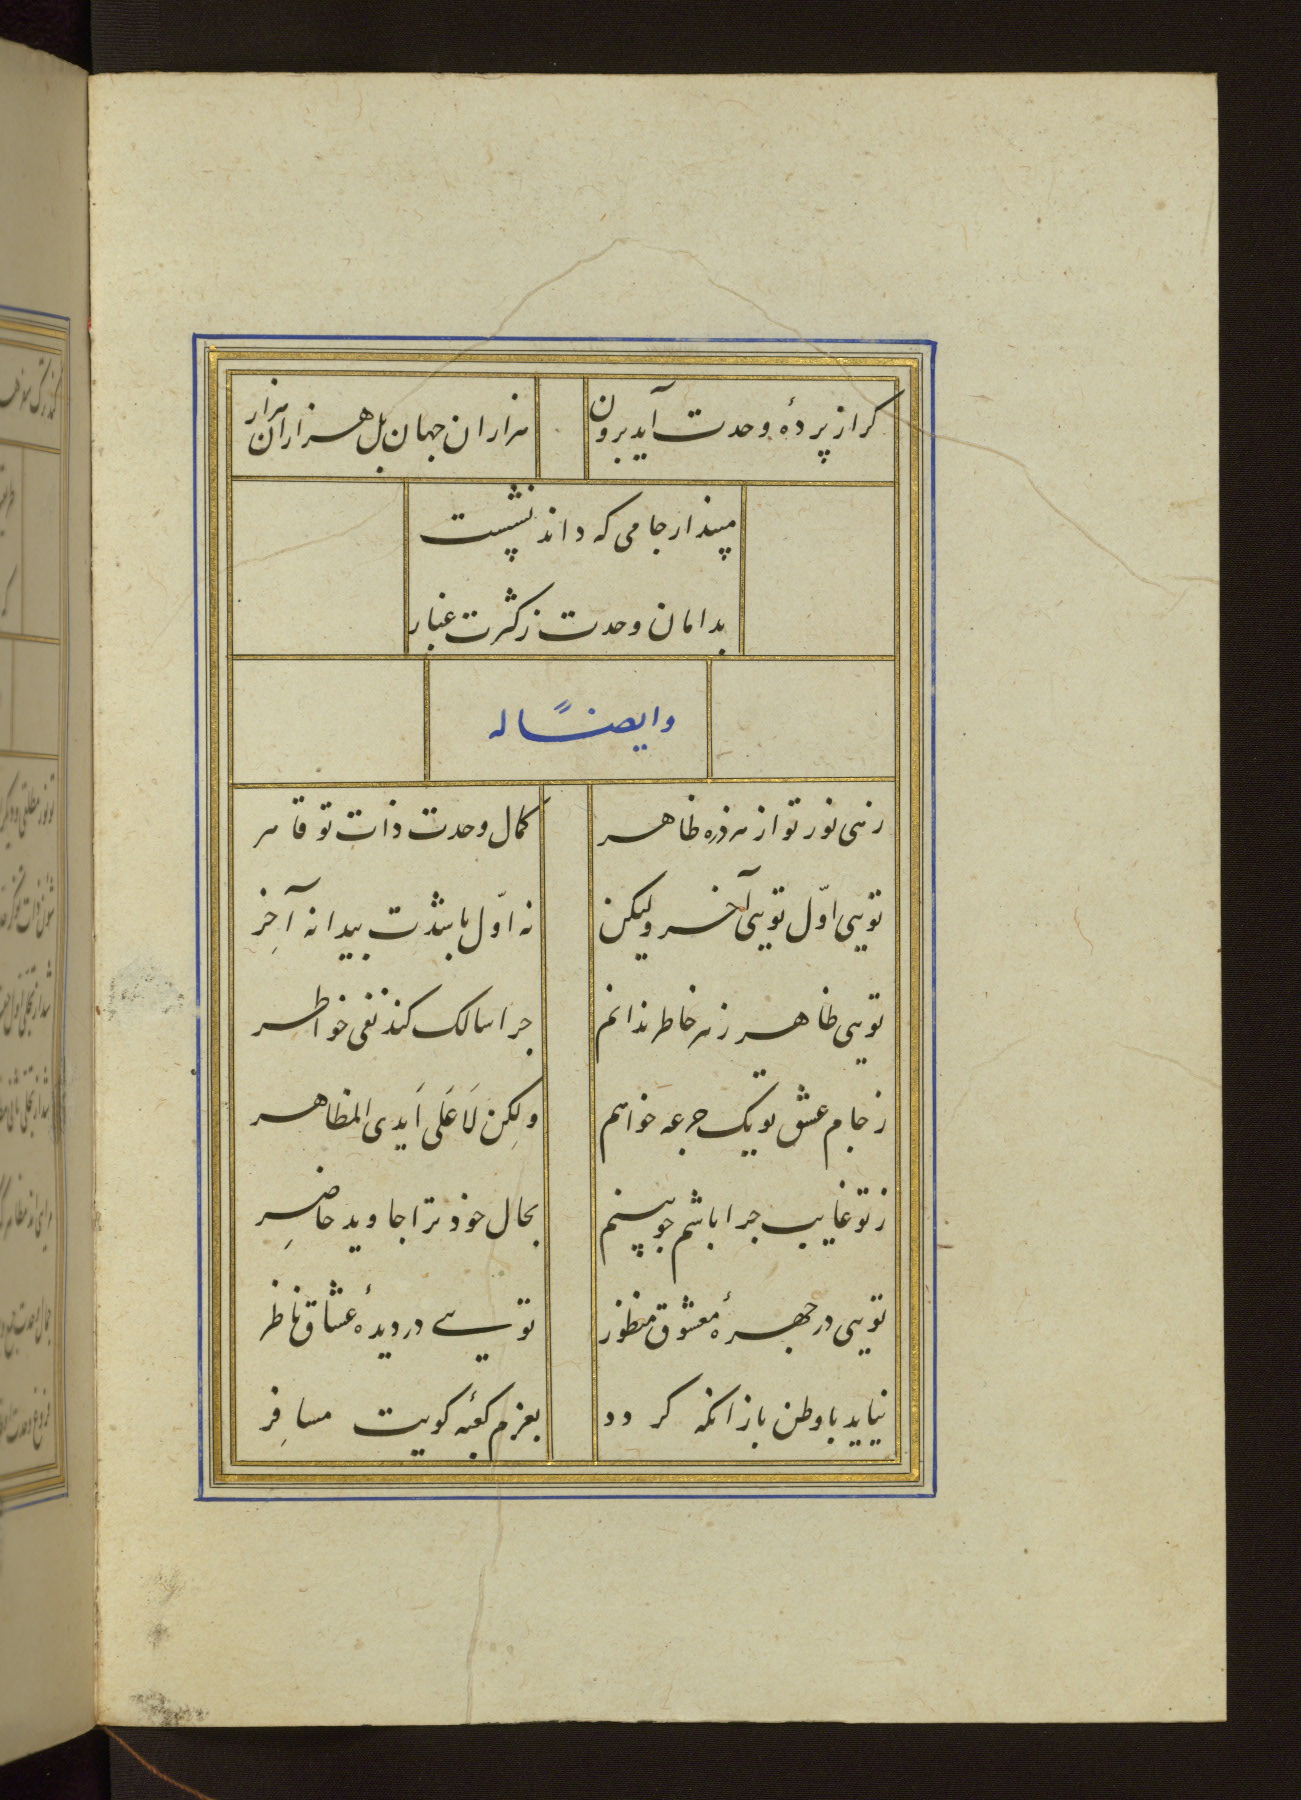 کر از پردهٔ وحدت آید برون
هزاران جهان بل هزاران هزار
مپندار جامی که داند نشست
بدامان وحدت ز کثرت غبار
وایضًا له
زهی نور تو از هر ذره ظاهر
کمال وحدت ذات تو قاهر
تویی اوّل تویی آخر ولیکن
نه اوّل باشدت پیدا نه آخِر
تویی ظاهر ز هر خاطر ندانم
چرا سالک کند نفی خواطر
ز جام عشق تو یک جرعه خواهم
ولکِن لَا عَلَی اَیدی المظاهر
ز تو غایب چرا باشم چو بینم
بحال خود ترا جاوید حاضِر
تویی در چهرهٔ معشوق منظور
تویی در دیدهٔ عشاق ناظر
نیاید با وطن باز انکه کردد
بعزم کعبهٔ کویت مسافِر